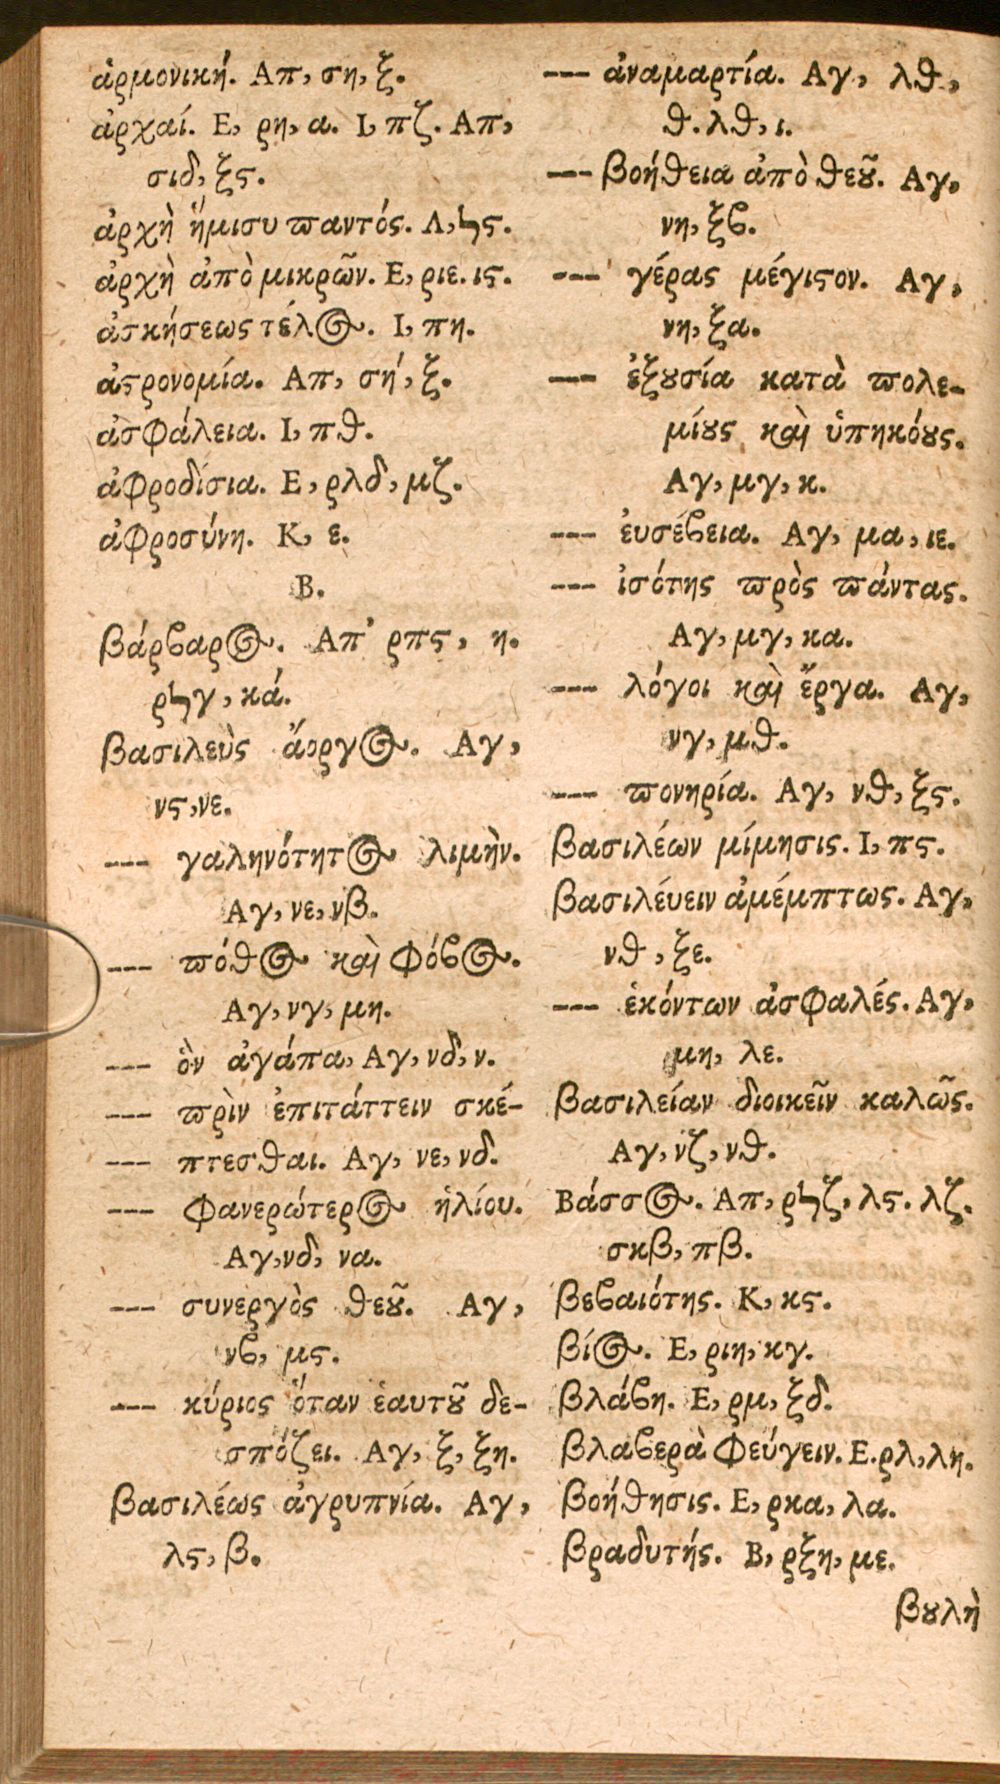 ἁρμονική. Απ, ση, ξ.
ἀρχαί. Ε, ρη, α. Ι, πζ. Απ,
σιδ, ξϛ.
ἀρχὴ ἥμισυ παντός. Λ, ϟϛ.
ἀρχὴ ἀπὸ μικρῶν. Ε, ριε. ιϛ.
ἀσκήσεως τέλος. Ι, πη.
ἀϛρονομία. Απ, σή, ξ.
ἀσφάλεια. Ι, πθ.
ἀφροδίσια. Ε, ρλδ, μζ.
ἀφροσύνη. Κ, ε.
Β.
βάρβαρος. Απ᾽ ρπϛ, η.
ρϟγ, κά.
βασιλεὺς ἄοργος. Αγ,
νϛ, νε.
--- γαληνότητος λιμὴν.
Αγ, νε, νβ.
--- πόθος καὶ φόβος.
Αγ, νγ, μη.
--- ὃν ἀγάπα, Αγ, νδ, ν.
--- πρὶν ἐπιτάττειν σκέ-
--- πτεσθαι. Αγ, νε, νδ.
--- φανερώτερος ἡλίου.
Αγ, νδ, να.
--- συνεργὸς θεοῦ. Αγ,
νβ, μϛ.
--- κύριος ὅταν ἑαυτοῦ δε-
σπόζει. Αγ, ξ, ξη.
βασιλέως ἀγρυπνία. Αγ,
λϛ, β.
--- ἀναμαρτία. Αγ, λθ,
θ. λθ, ι.
--- βοήθεια ἀπὸ θεοῦ. Αγ,
νη, ξβ.
--- γέρας μέγιϛον. Αγ,
νη, ξα.
--- ἐξουσία κατὰ πολε-
μίους καὶ ὑπηκόους.
Αγ, μγ, κ.
--- ἐυσέβεια. Αγ, μα, ιε.
--- ἰσότης πρὸς πάντας.
Αγ, μγ, κα.
--- λόγοι καὶ ἔργα. Αγ,
νγ, μθ.
--- πονηρία. Αγ, νθ, ξϛ.
βασιλέων μίμησις. Ι, πϛ.
βασιλέυειν ἀμέμπτως. Αγ,
νθ, ξε.
--- ἑκόντων ἀσφαλές. Αγ,
μη, λε.
βασιλείαν διοικεῖν καλῶς.
Αγ, νζ, νθ.
Βάσσος. Απ, ρϟζ, λϛ. λζ.
σκβ, πβ.
βεβαιότης. Κ, κϛ.
βίος. Ε, ριη, κγ.
βλάβη. Ε, ρμ, ξδ.
βλαβερὰ φεύγειν. Ε. ρλ, λη.
βοήθησις. Ε, ρκα, λα.
βραδυτής. Β, ρξη, με.
βουλὴ